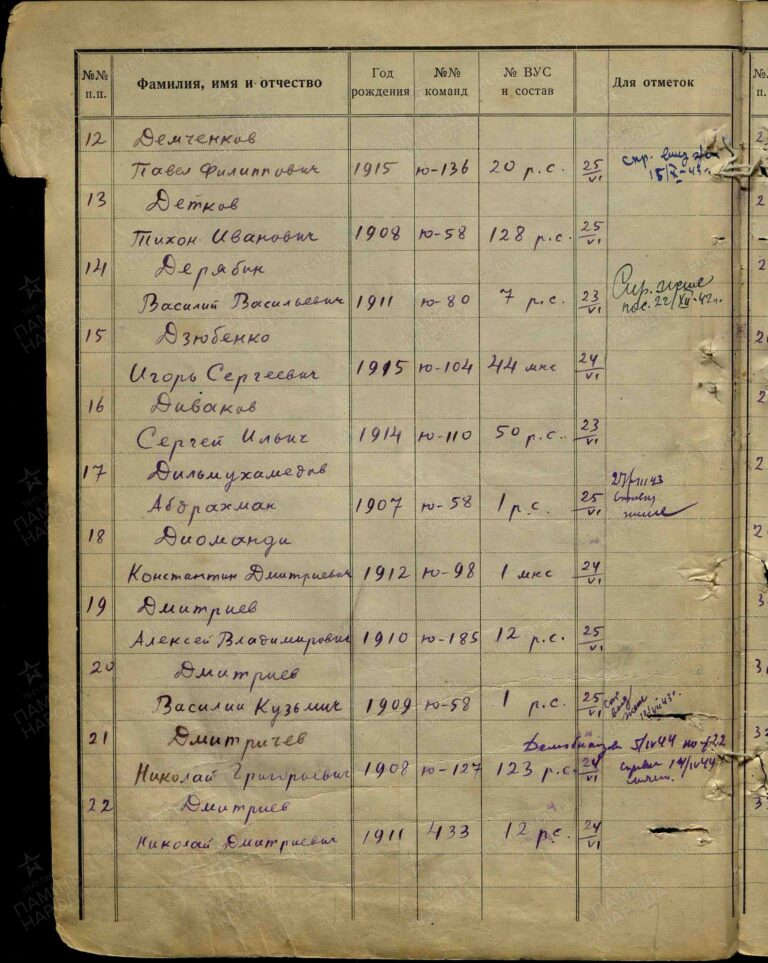 №№ п.п. Фамилия, имя и отчество Год рождения №№ команд № ВУС и состав Для отметок
12 Демченков
Павел Филиппович 1915 ю-136 20 р.с. 25/VI спр.
15/X-43г.
13 Детков
Тихон Иванович 1908 ю-58 128 р.с. 25/VI
14 Дерябин
Василий Васильевич 1911 ю-80 7 р.с. 23/VI Спр. жене
пос. 22/XII-42г.
15 Дзюбенко
Игорь Сергеевич 1915 ю-104 44 мнс 24/VI
16 Диваков
Сергей Ильич 1914 ю-110 50 р.с. 23/VI
17 Дильмухамедов
27/III 43
Абдрахман 1907 ю-58 1 р.с. 25/VI жене
18 Диоманди
Константин Дмитриевич 1912 ю-98 1 мнс 24/VI
19 Дмитриев
Алексей Владимирович 1910 ю-185 12 р.с. 25/VI
20 Дмитриев
Василий Кузьмич 1909 ю-58 1 р.с. 25/VI
21 Дмитричев 5/IV 44
Николай Григорьевич 1908 ю-127 123 р.с. 24/VI 14/IV 44
22 Дмитриев
Николай Дмитриевич 1911 433 12 р.с. 24/VI